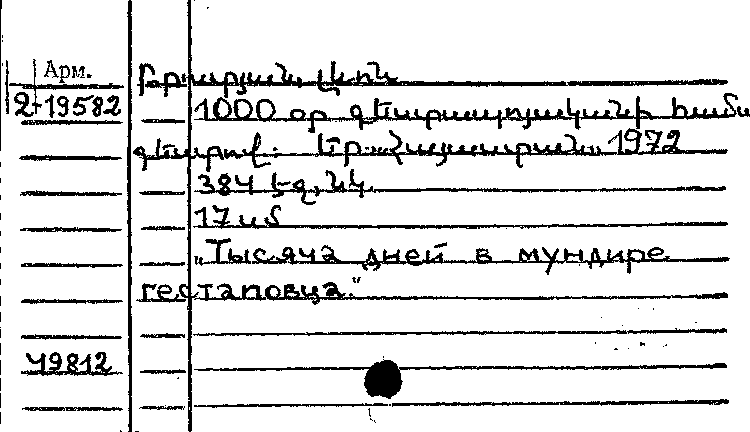 Арм.
2-19582
1000 օր գեստապոյականի համա
զգեստով. Եր. „Հայաստան„ 1972
384 էջ, նկ.
17 սմ
„Тысяча дней в мундире
гестаповца."
49812